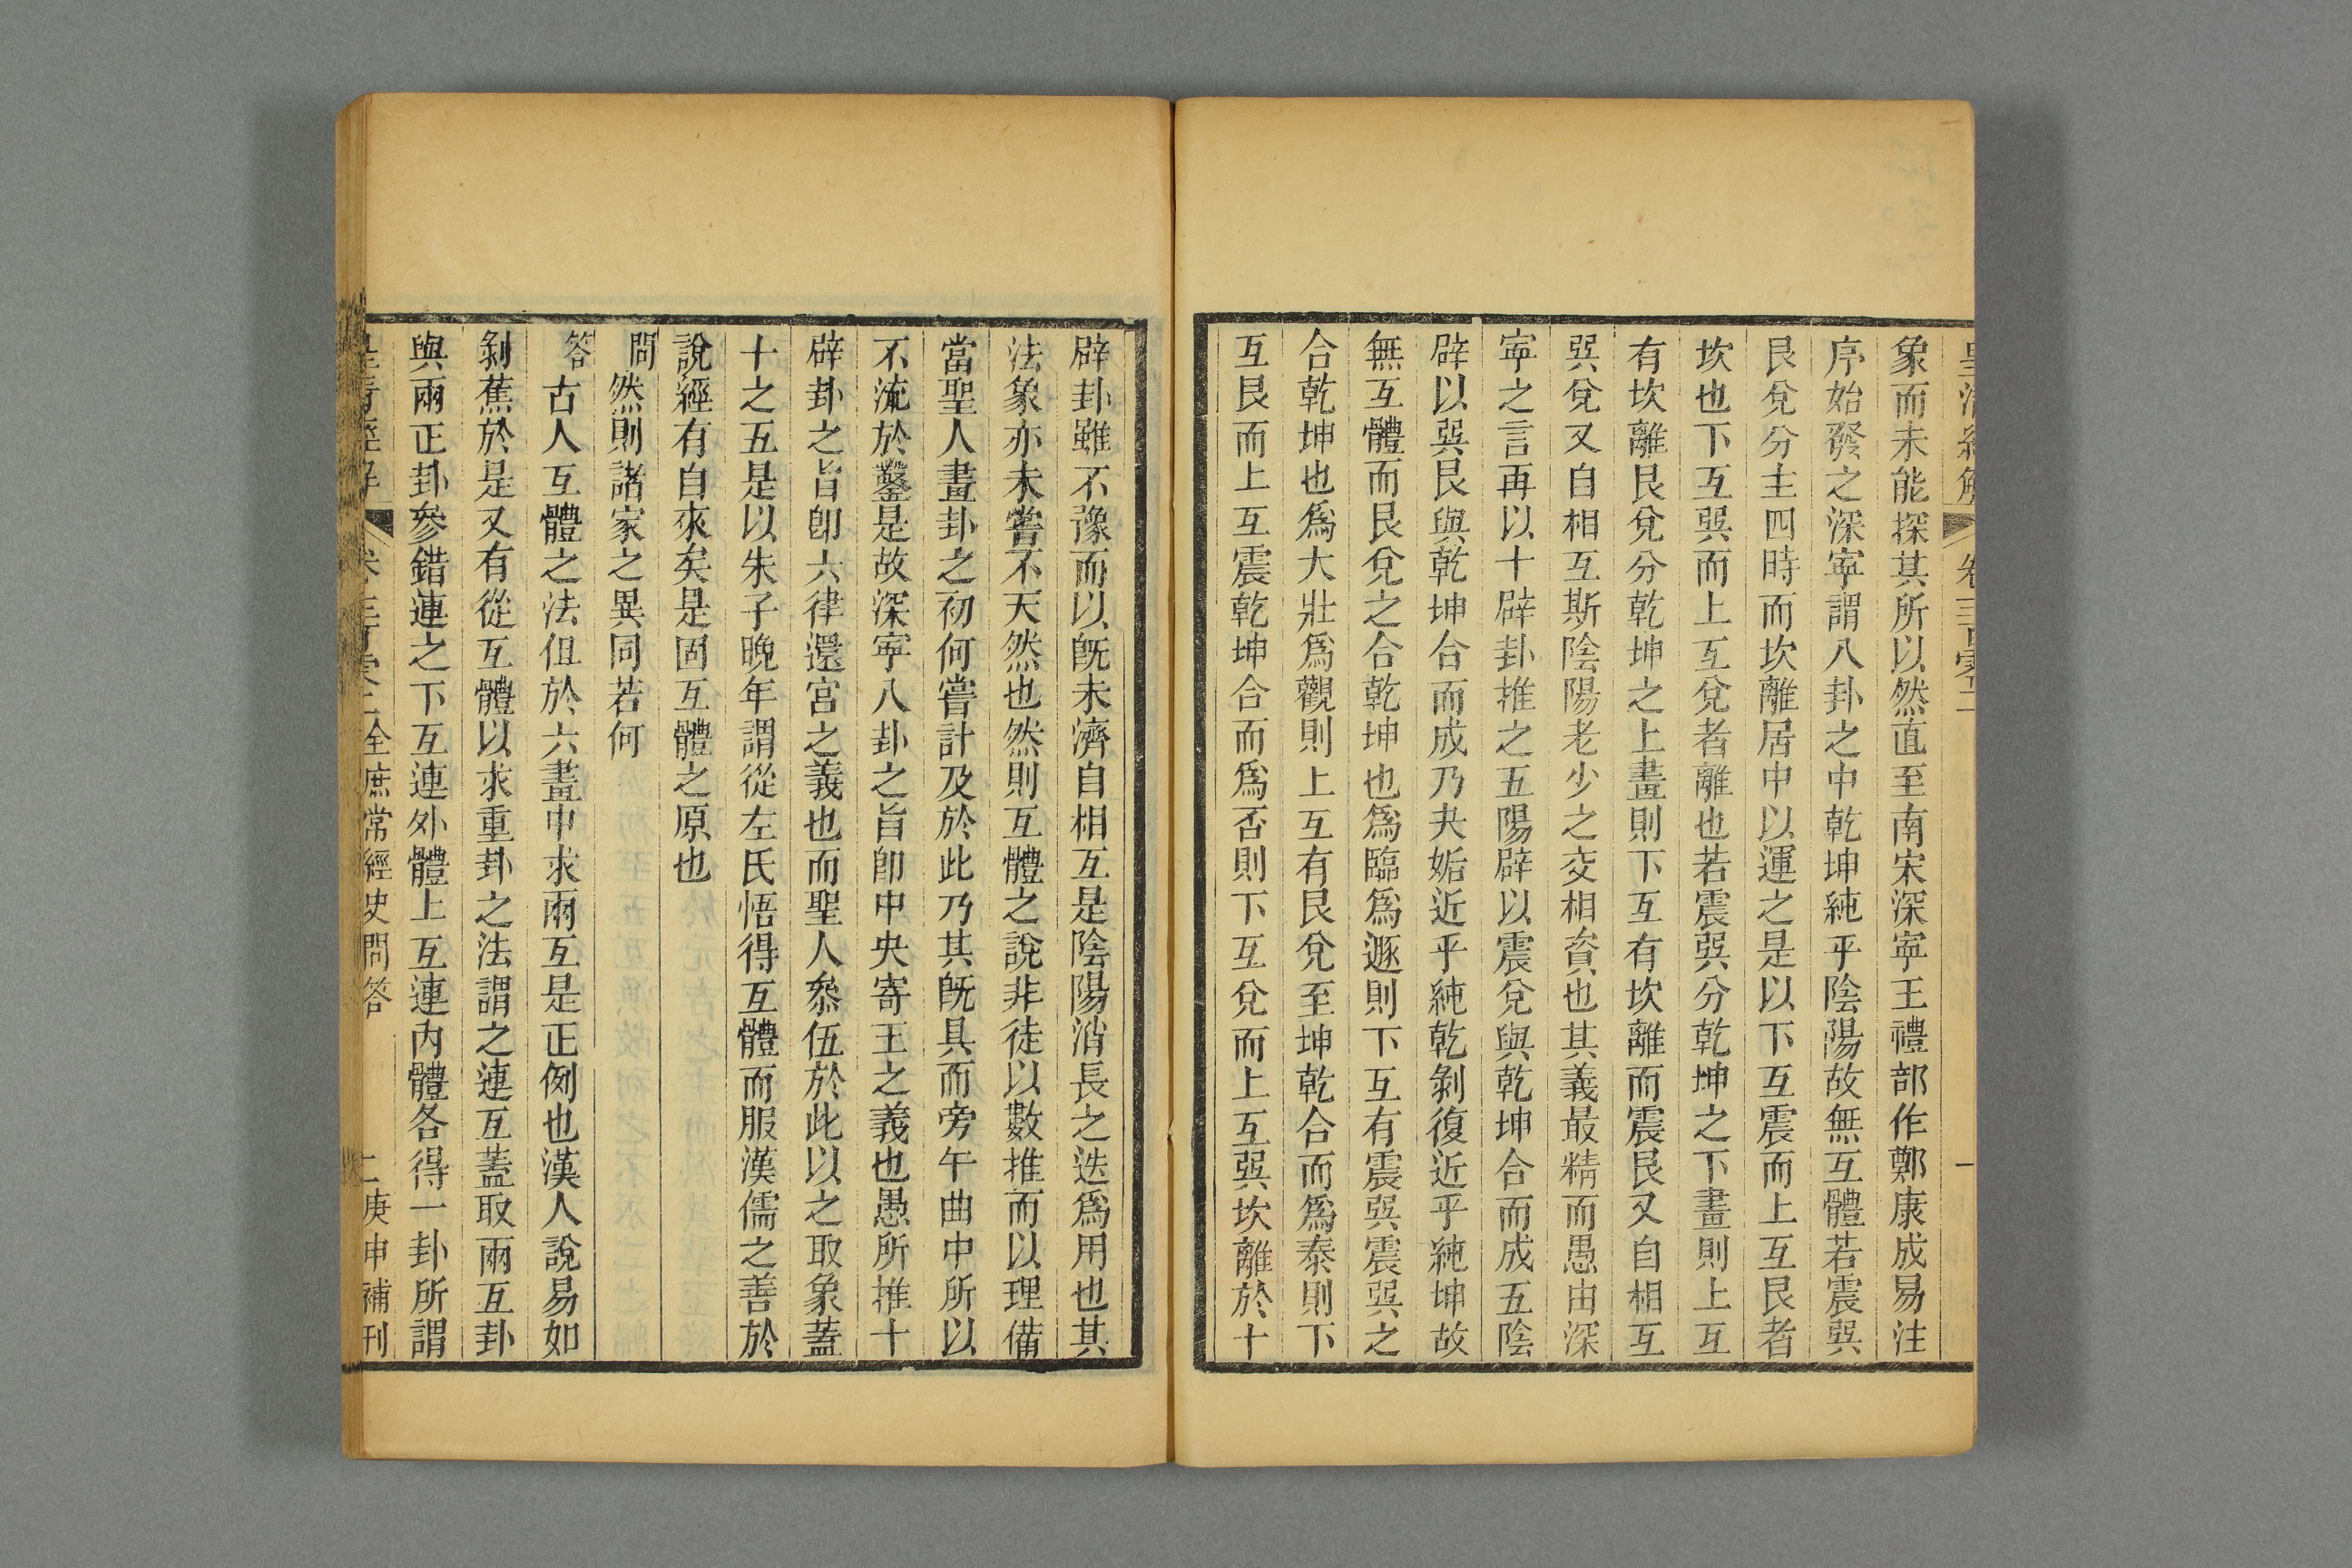 皇清經解 卷三百零二 一
象而未能探其所以然直至南宋深寧王禮部作鄭康成易注
序始發之深寧謂八卦之中乾坤純乎陰陽故無互體若震巽
艮兌分主四時而坎離居中以運之是以下互震而上互艮者
坎也下互巽而上互兌者離也若震巽分乾坤之下畫則上互
有坎離艮兌分乾坤之上畫則下互有坎離而震艮又自相互
巽兌又自相互斯陰陽老少之交相資也其義最精而愚由深
寧之言再以十辟卦推之五陽辟以震兌與乾坤合而成五陰
辟以巽艮與乾坤合而成乃夬姤近乎純乾剝復近乎純坤故
無互體而艮兌之合乾坤也為臨為遯則下互有震巽震巽之
合乾坤也為大壯為觀則上互有艮兌至坤乾合而為泰則下
互艮而上互震乾坤合而為否則下互兌而上互巽坎離於十
辟卦雖不豫而以旣未濟自相互是陰陽消長之迭為用也其
法象亦未嘗不天然也然則互體之說非徒以數推而以理備
當聖人畫卦之初何嘗計及於此乃其旣具而旁午曲中所以
不流於鑿是故深寧八卦之旨卽中央寄王之義也愚所推十
辟卦之旨卽六律還宮之義也而聖人叅伍於此以之取象蓋
十之五是以朱子晚年謂從左氏悟得互體而服漢儒之善於
說經有自來矣是固互體之原也
問然則諸家之異同若何
答古人互體之法但於六畫中求兩互是正例也漢人說易如
剝蕉於是又有從互體以求重卦之法謂之連互蓋取兩互卦
與兩正卦參錯連之下互連外體上互連內體各得一卦所謂
皇清經解 卷三百零二 全庶常經史問答 二 庚申補刊